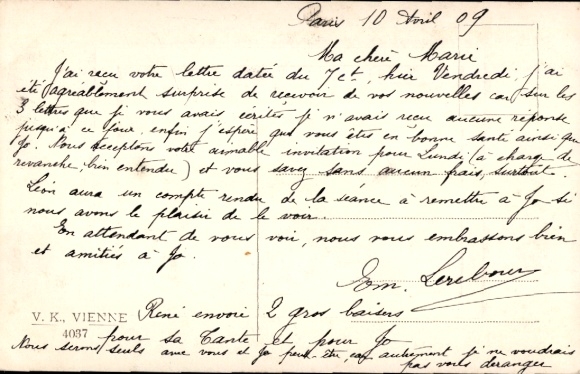 Paris 10 Avril 09
Ma chère Marie
J'ai reçu votre lettre datée du 7ct, hier Vendredi, j'ai
été agréablement surprise de recevoir de vos nouvelles car sur les
3 lettres que je vous avais écrites je n'avais reçu aucune réponse
jusqu'à ce jour, enfin j'espère que vous êtes en bonne santé ainsi que
Jo. Nous acceptons votre aimable invitation pour Lundi (à charge de
revanche, bien entendu) et vous savez sans aucun frais, surtout.
Léon aura un compte rendu de la séance à remettre à Jo si
nous avons le plaisir de le voir.
En attendant de vous voir, nous vous embrassons bien
et amitiés à Jo.
Em. Lerebour
René envoie 2 gros baisers
pour sa Tante et pour Jo
Nous serons seuls avec vous et Jo peut-être, car autrement je ne voudrais
pas vous déranger
V. K., VIENNE
4037